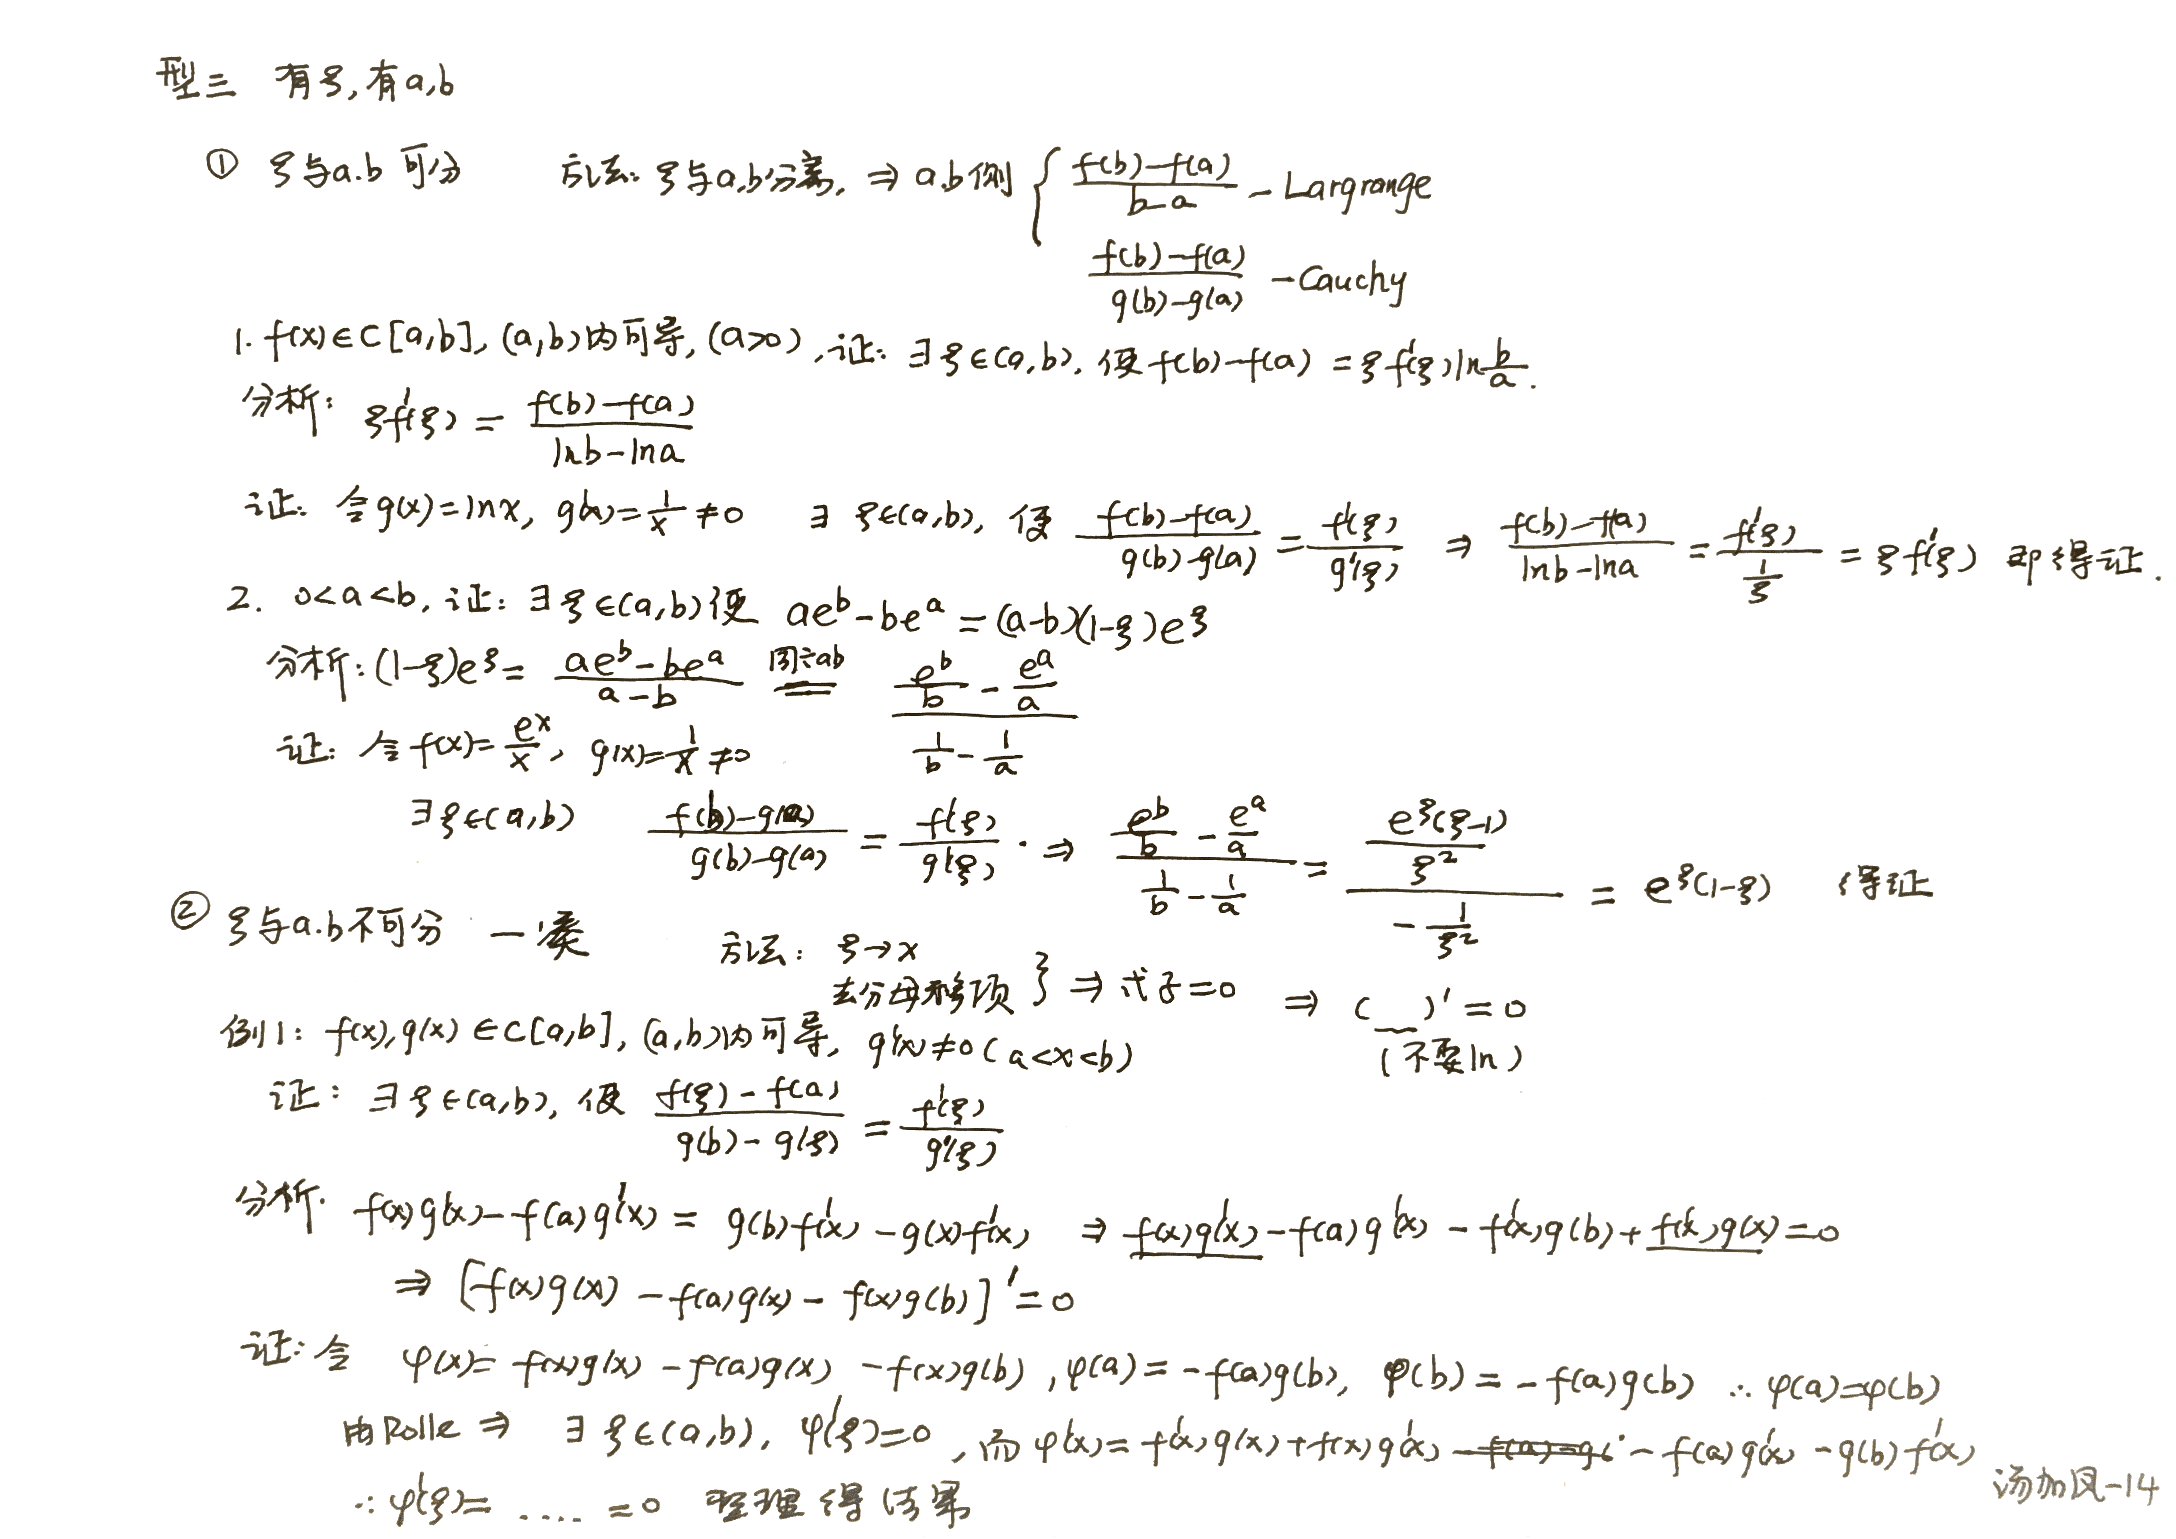 型三 有ξ,有a,b
① ξ与a.b 可分 方法: ξ与a,b分离, ⇒ a,b侧 { (f(b)-f(a))/(b-a) - Largrange
(f(b)-f(a))/(g(b)-g(a)) - Cauchy
1. f(x)∈C[a,b], (a,b)内可导, (a>0), 证: ∃ξ∈(a,b), 使f(b)-f(a) = ξf'(ξ)ln b/a.
分析: ξf'(ξ) = (f(b)-f(a))/(lnb-lna)
证: 令g(x)=lnx, g'(x)=1/x ≠0 ∃ ξ∈(a,b), 使 (f(b)-f(a))/(g(b)-g(a)) = f'(ξ)/g'(ξ) ⇒ (f(b)-f(a))/(lnb-lna) = f'(ξ)/(1/ξ) = ξf'(ξ) 即得证.
2. 0<a<b, 证: ∃ξ∈(a,b)使 ae^b-be^a = (a-b)(1-ξ)e^ξ
分析: (1-ξ)e^ξ = (ae^b-be^a)/(a-b) 同÷ab == (e^b/b - e^a/a)/(1/b - 1/a)
证: 令f(x)=e^x/x, g(x)=1/x ≠0
∃ξ∈(a,b) (f(b)-g(a))/(g(b)-g(a)) = f'(ξ)/g'(ξ) . ⇒ (e^b/b - e^a/a)/(1/b - 1/a) = (e^ξ(ξ-1)/ξ²)/(-1/ξ²) = e^ξ(1-ξ) 得证
② ξ与a.b不可分 一凑 方法: ξ→x
去分母移项 } ⇒ 式子=0 ⇒ (__)'=0
(不要ln)
例1: f(x),g(x) ∈C[a,b], (a,b)内可导, g'(x)≠0 (a<x<b)
证: ∃ξ∈(a,b), 使 (f(ξ)-f(a))/(g(b)-g(ξ)) = f'(ξ)/g'(ξ)
分析. f(x)g'(x)-f(a)g'(x) = g(b)f'(x)-g(x)f'(x) ⇒ f(x)g'(x)-f(a)g'(x)-f'(x)g(b)+f'(x)g(x)=0
⇒ [f(x)g(x)-f(a)g(x)-f(x)g(b)]'=0
证: 令 φ(x)= f(x)g(x)-f(a)g(x)-f(x)g(b), φ(a)=-f(a)g(b), φ(b)=-f(a)g(b) ∴φ(a)=φ(b)
由Rolle ⇒ ∃ξ∈(a,b), φ'(ξ)=0, 而φ'(x)= f'(x)g(x)+f(x)g'(x) -f(a)g'(x)-g(b)f'(x)
∴φ'(ξ)= ..... =0 整理得结果
汤加凤-14